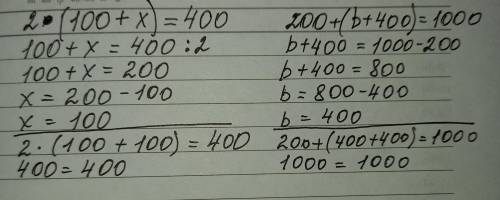 2 • (100 + x) = 400
100 + x = 400 : 2
100 + x = 200
x = 200 - 100
x = 100
2 · (100 + 100) = 400
400 = 400
200 + (b + 400) = 1000
b + 400 = 1000 - 200
b + 400 = 800
b = 800 - 400
b = 400
200 + (400 + 400) = 1000
1000 = 1000